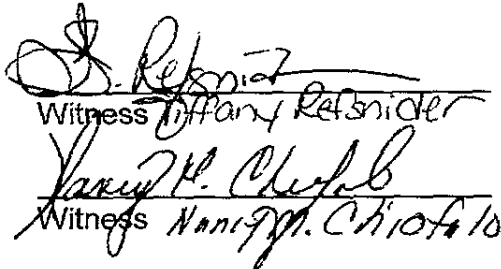 T. Refsnider
Witness Tiffany Refsnider
Nancy M. Chiofalo
Witness Nancy M. Chiofalo